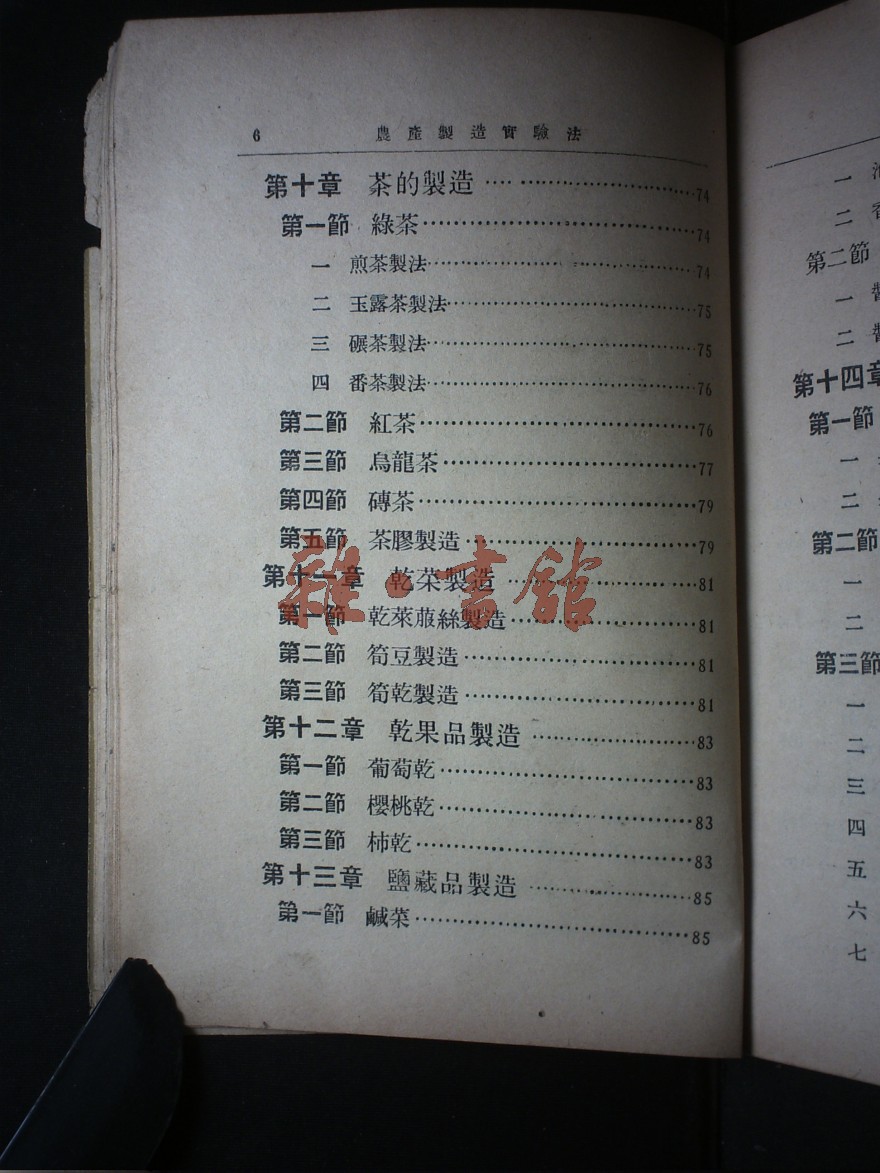 6 農產製造實驗法
第十章 茶的製造 …………………… 74
第一節 綠茶 …………………… 74
一 煎茶製法 …………………… 74
二 玉露茶製法 …………………… 75
三 碾茶製法 …………………… 75
四 番茶製法 …………………… 76
第二節 紅茶 …………………… 76
第三節 烏龍茶 …………………… 77
第四節 磚茶 …………………… 79
第五節 茶膠製造 …………………… 79
第十一章 乾菜製造 …………………… 81
第一節 乾萊菔絲製造 …………………… 81
第二節 筍豆製造 …………………… 81
第三節 筍乾製造 …………………… 81
第十二章 乾果品製造 …………………… 83
第一節 葡萄乾 …………………… 83
第二節 櫻桃乾 …………………… 83
第三節 柿乾 …………………… 83
第十三章 鹽藏品製造 …………………… 85
第一節 鹹菜 …………………… 85
雜·書館
一
二
第二節
一
二
第十四章
第一節
一
二
第二節
一
二
第三節
一
二
三
四
五
六
七